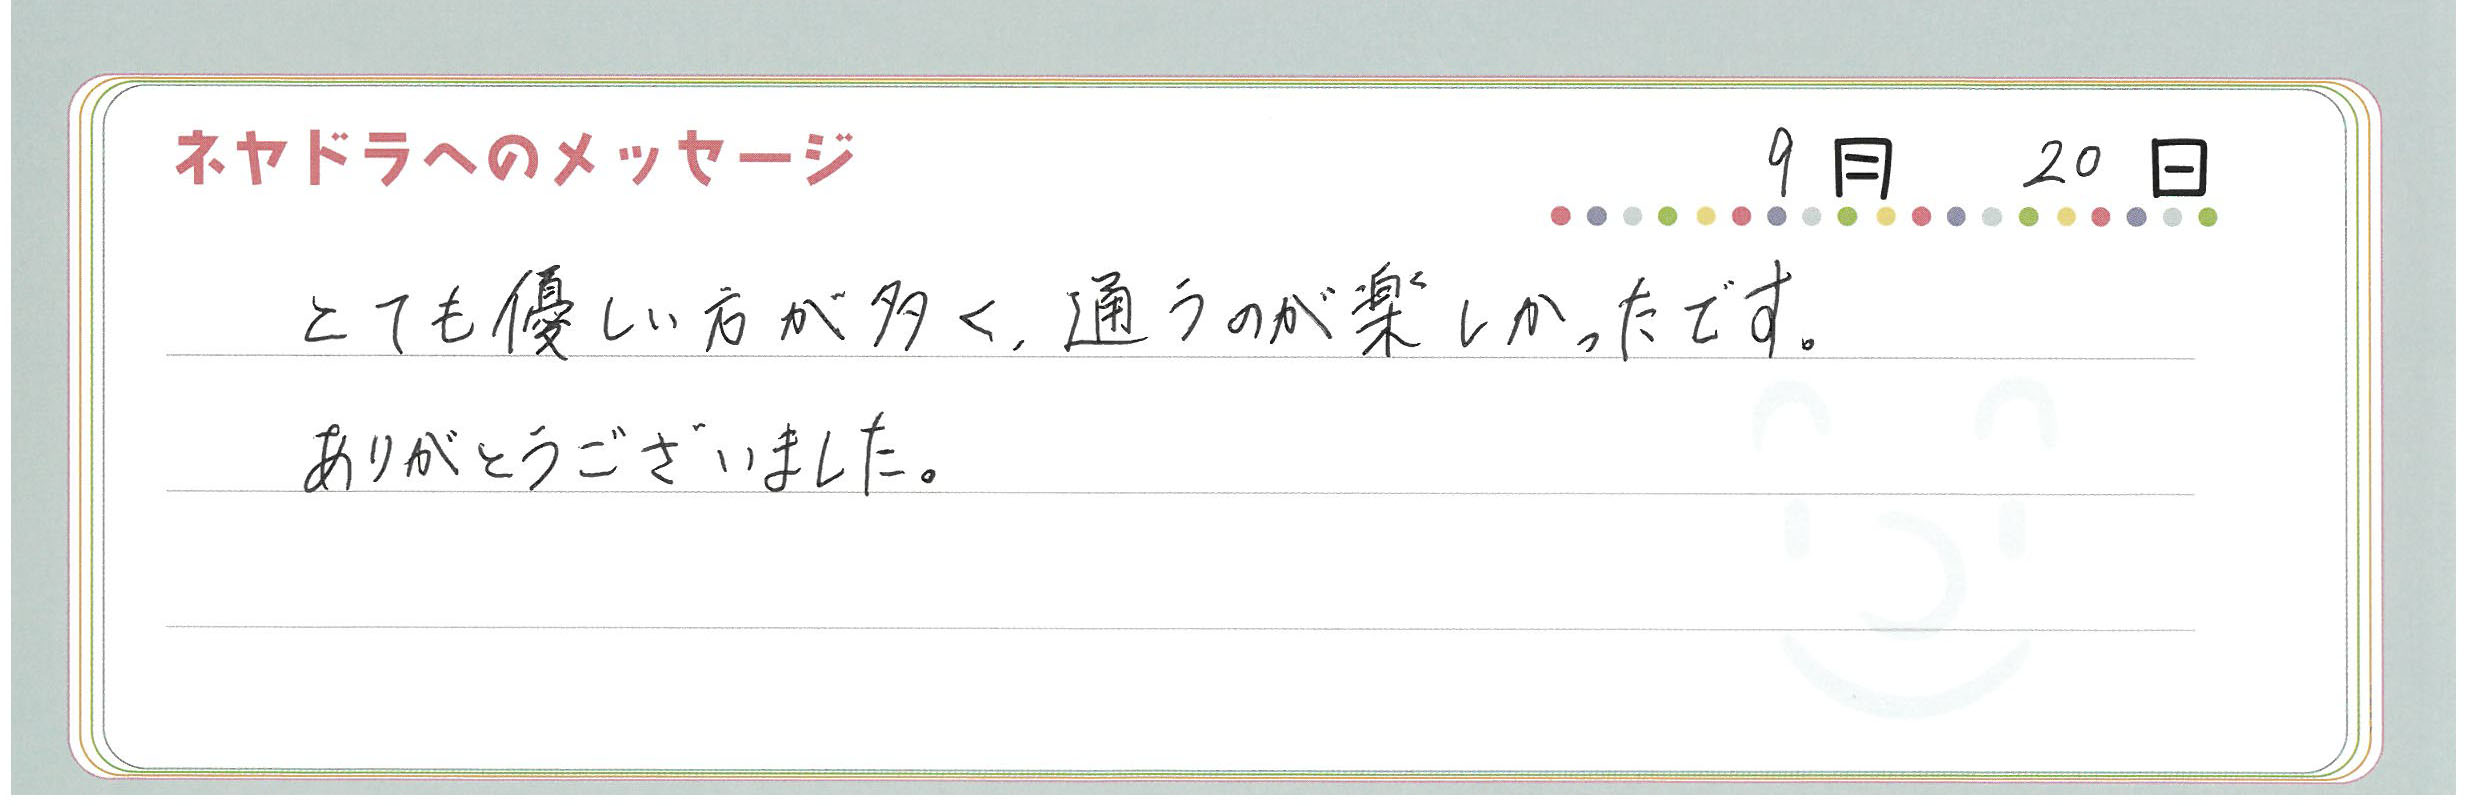 ネヤドラへのメッセージ
9月 20日
とても優しい方が多く、通うのが楽しかったです。
ありがとうございました。